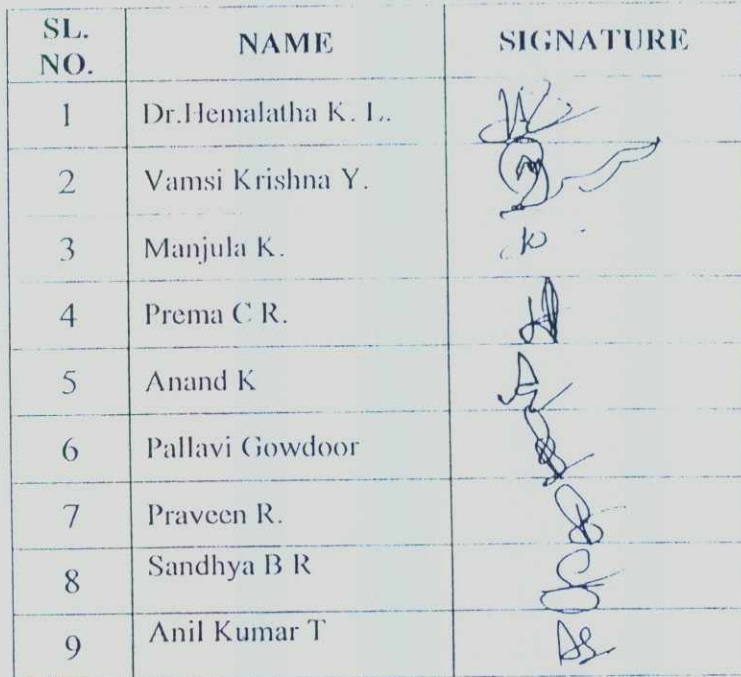 SL. NO. NAME SIGNATURE
1 Dr.Hemalatha K. L.
2 Vamsi Krishna Y.
3 Manjula K.
4 Prema C R.
5 Anand K
6 Pallavi Gowdoor
7 Praveen R.
8 Sandhya B R
9 Anil Kumar T